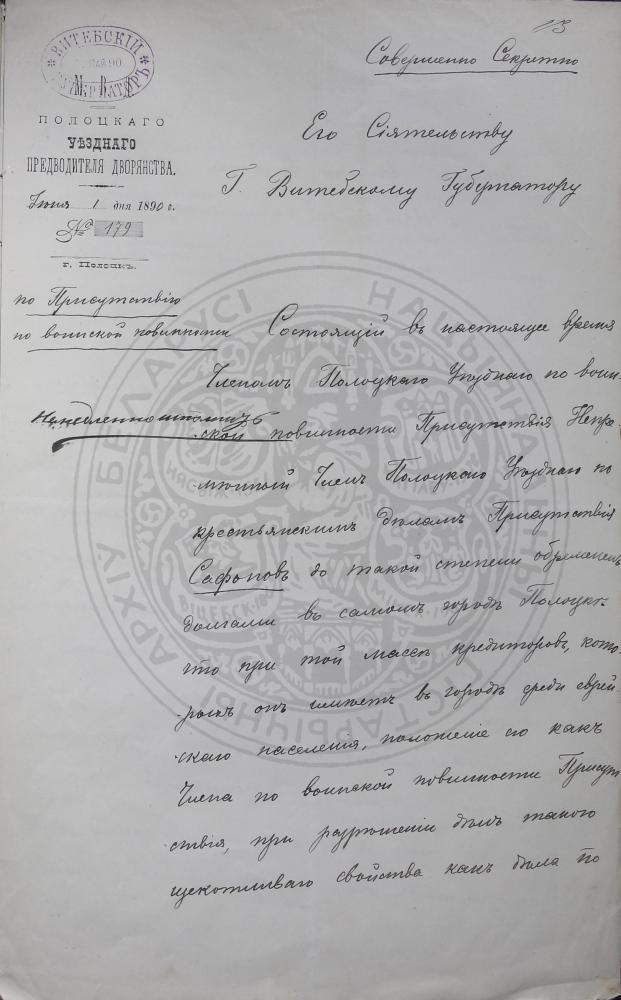 13
Совершенно Секретно
ВИТЕБСКІЙ
ГУБЕРНАТОРЪ
М. В. Д.
ПОЛОЦКАГО
УѢЗДНАГО
ПРЕДВОДИТЕЛЯ ДВОРЯНСТВА.
Іюня 1 дня 1890 г.
№ 179
г. Полоцкъ.
Его Сіятельству
Г. Витебскому Губернатору
по Присутствію
по воинской повинности
Состоящій въ настоящее время
Членомъ Полоцкаго Уѣзднаго по воин-
ской повинности Присутствія Непре-
мѣнный Членъ Полоцкаго Уѣзднаго по
крестьянскимъ дѣламъ Присутствія
Сафоновъ до такой степени обремененъ
долгами въ самомъ городѣ Полоцкѣ
что при той массѣ кредиторовъ, кото-
рыхъ онъ имѣетъ въ городѣ среди еврей-
скаго населенія, положеніе его какъ
Члена по воинской повинности Присут
ствія, при разрѣшеніи дѣлъ такого
щекотливаго свойства какъ дѣла по